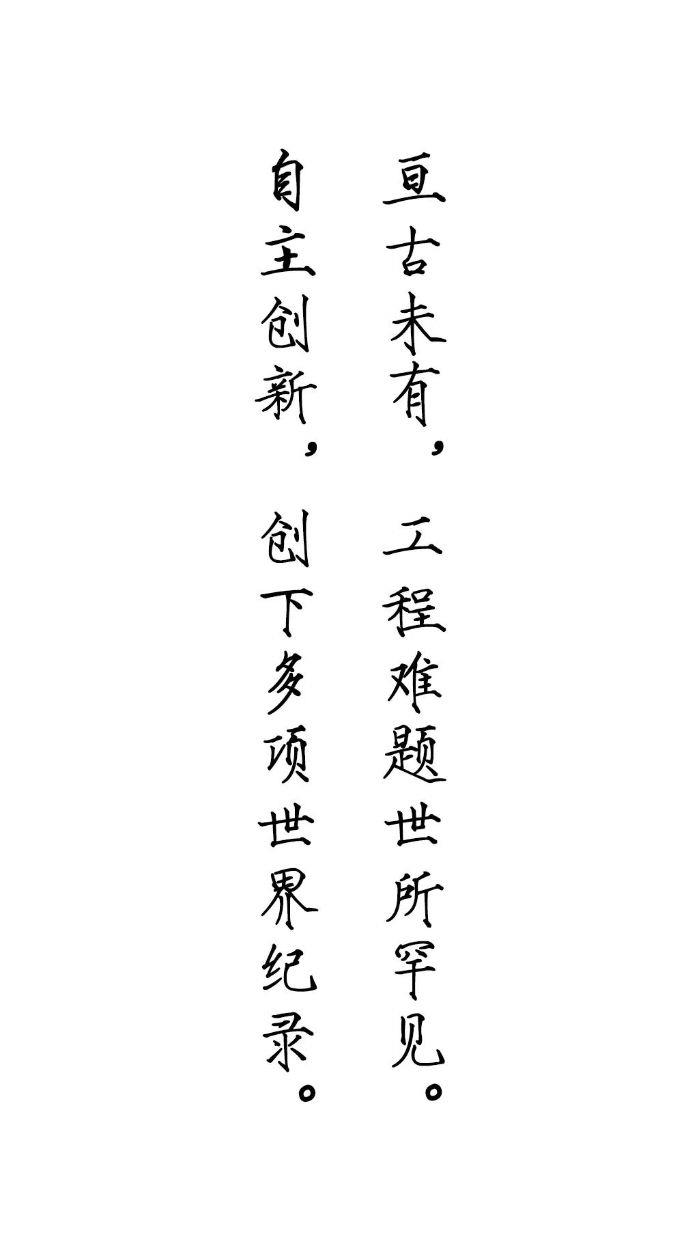 亘古未有，工程难题世所罕见。
自主创新，创下多项世界纪录。